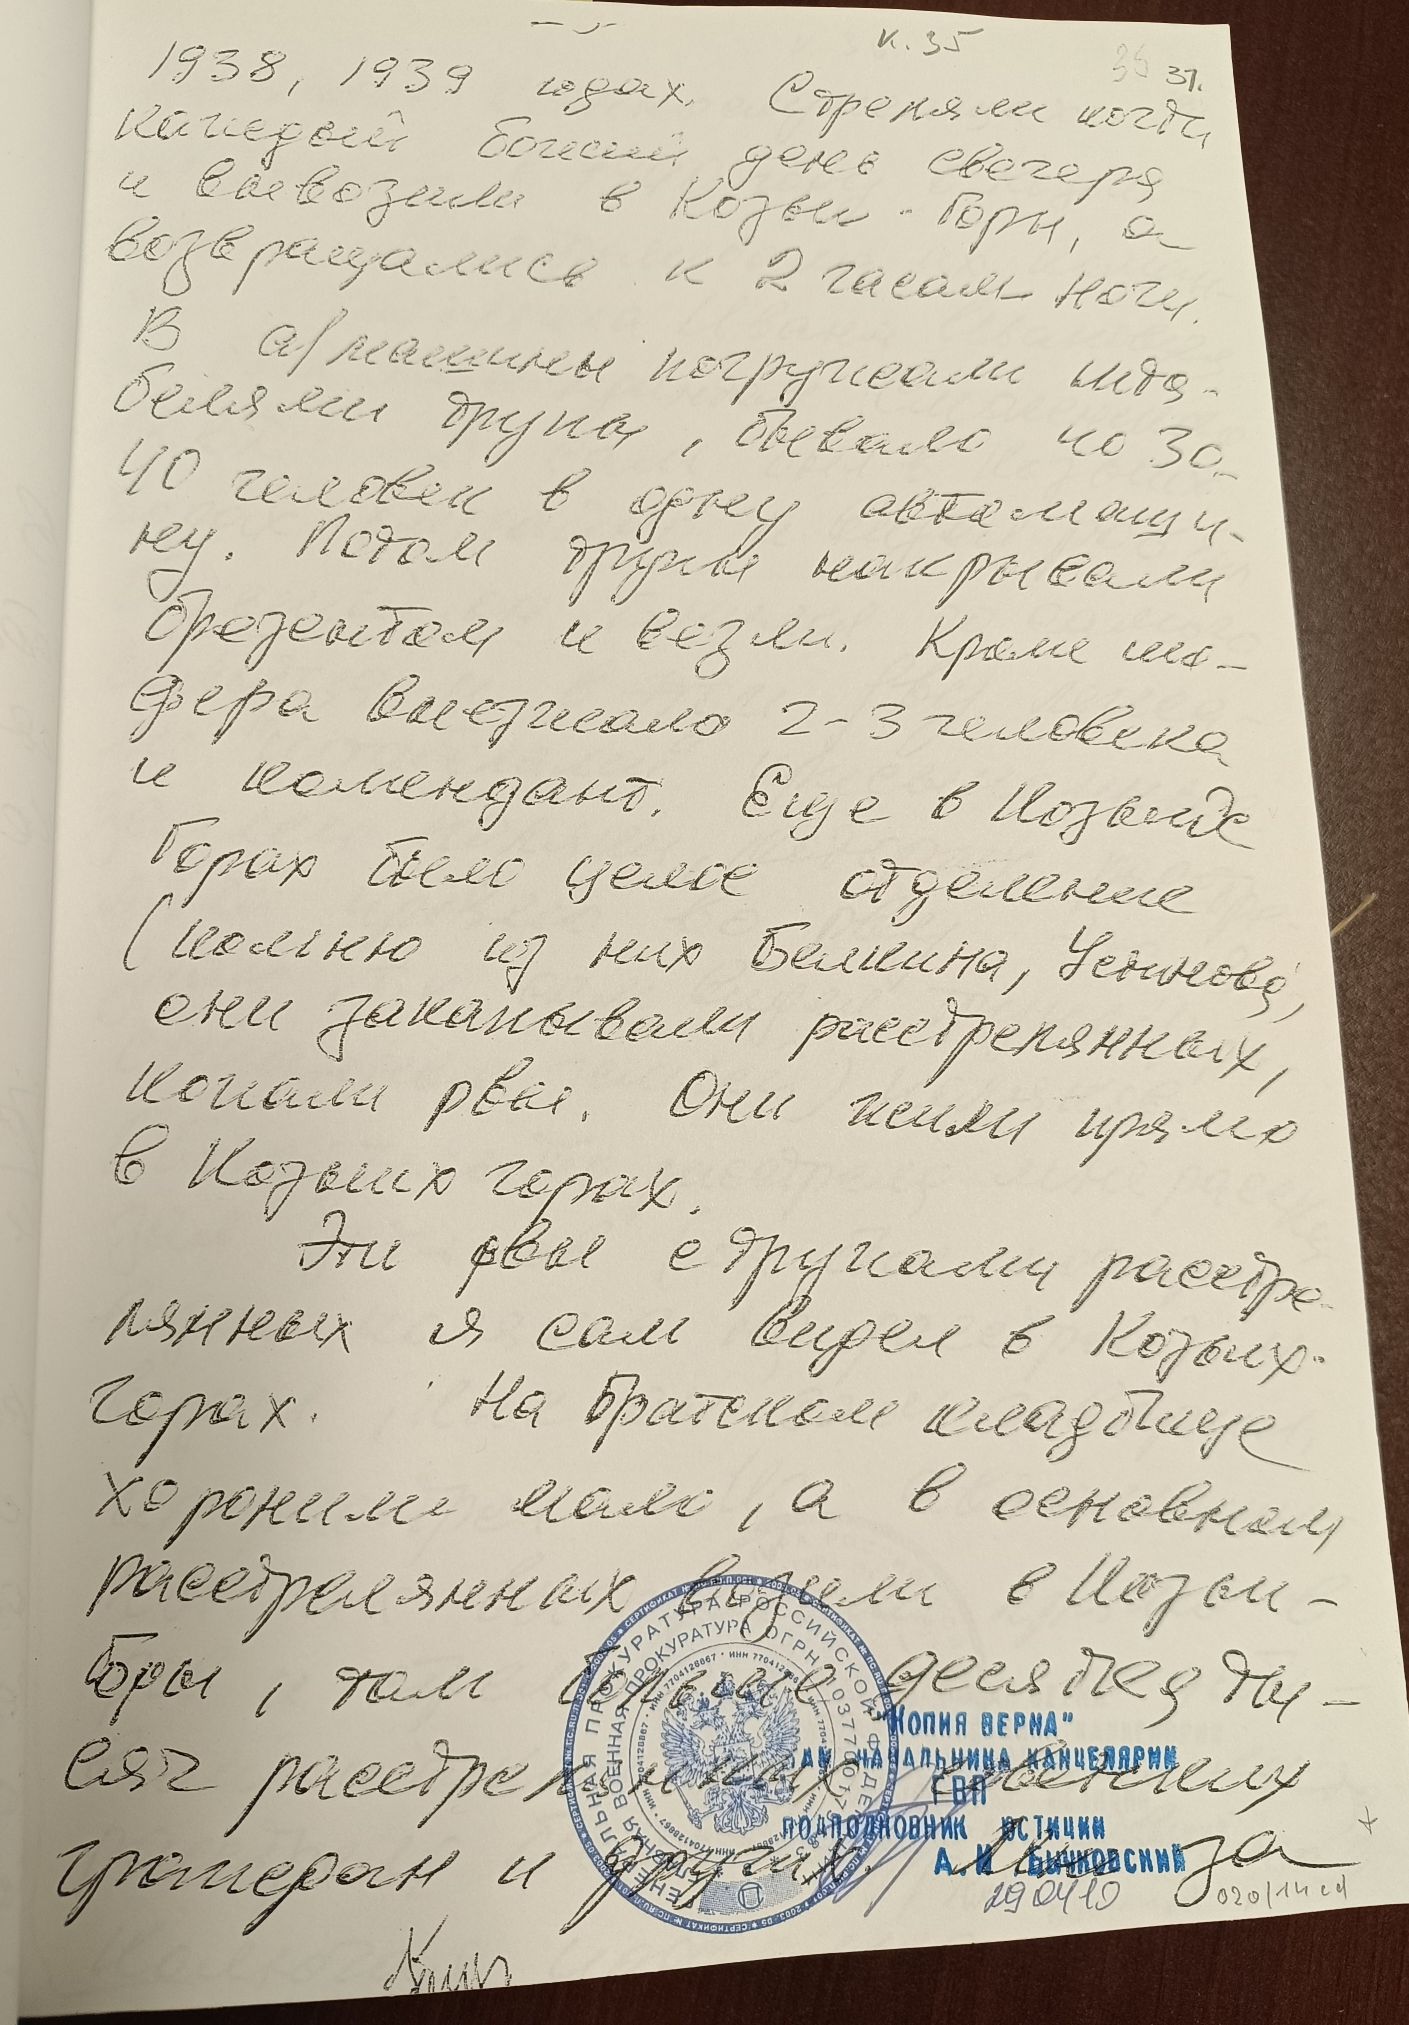 - 5 -
К. 35
36 37.
1938, 1939 годах. Стреляли почти
каждый божий день свечеря
и вывозили в Козьи-Горы, а
возвращались к 2 часам ночи.
В а/машины погружали шта-
белями трупы, бывало по 30-
40 человек в одну автомаши-
ну. Потом трупы накрывали
брезентом и везли. Кроме шо-
фера выезжало 2-3 человека
и комендант. Еще в Козьих
Горах было целое отделение
(помню из них Белкина, Устинова,
они закапывали расстрелянных,
копали рвы. Они жили прямо
в Козьих горах.
Эти рвы с трупами расстре-
лянных я сам видел в Козьих-
горах. На Братском кладбище
хоронили мало, а в основном
расстрелянных возили в Козьи-
Горы, там больше десятка ты-
сяч расстрелянных советских
граждан и других. за
"КОПИЯ ВЕРНА"
НАЧАЛЬНИКА КАНЦЕЛЯРИИ
ГВП
ПОДПОЛКОВНИК ЮСТИЦИИ
А.И. БЫЧКОВСКИЙ
290410
020/14
ГЕНЕРАЛЬНАЯ ПРОКУРАТУРА РОССИЙСКОЙ ФЕДЕРАЦИИ
ГЛАВНАЯ ВОЕННАЯ ПРОКУРАТУРА ОГРН
ИНН 7704128667